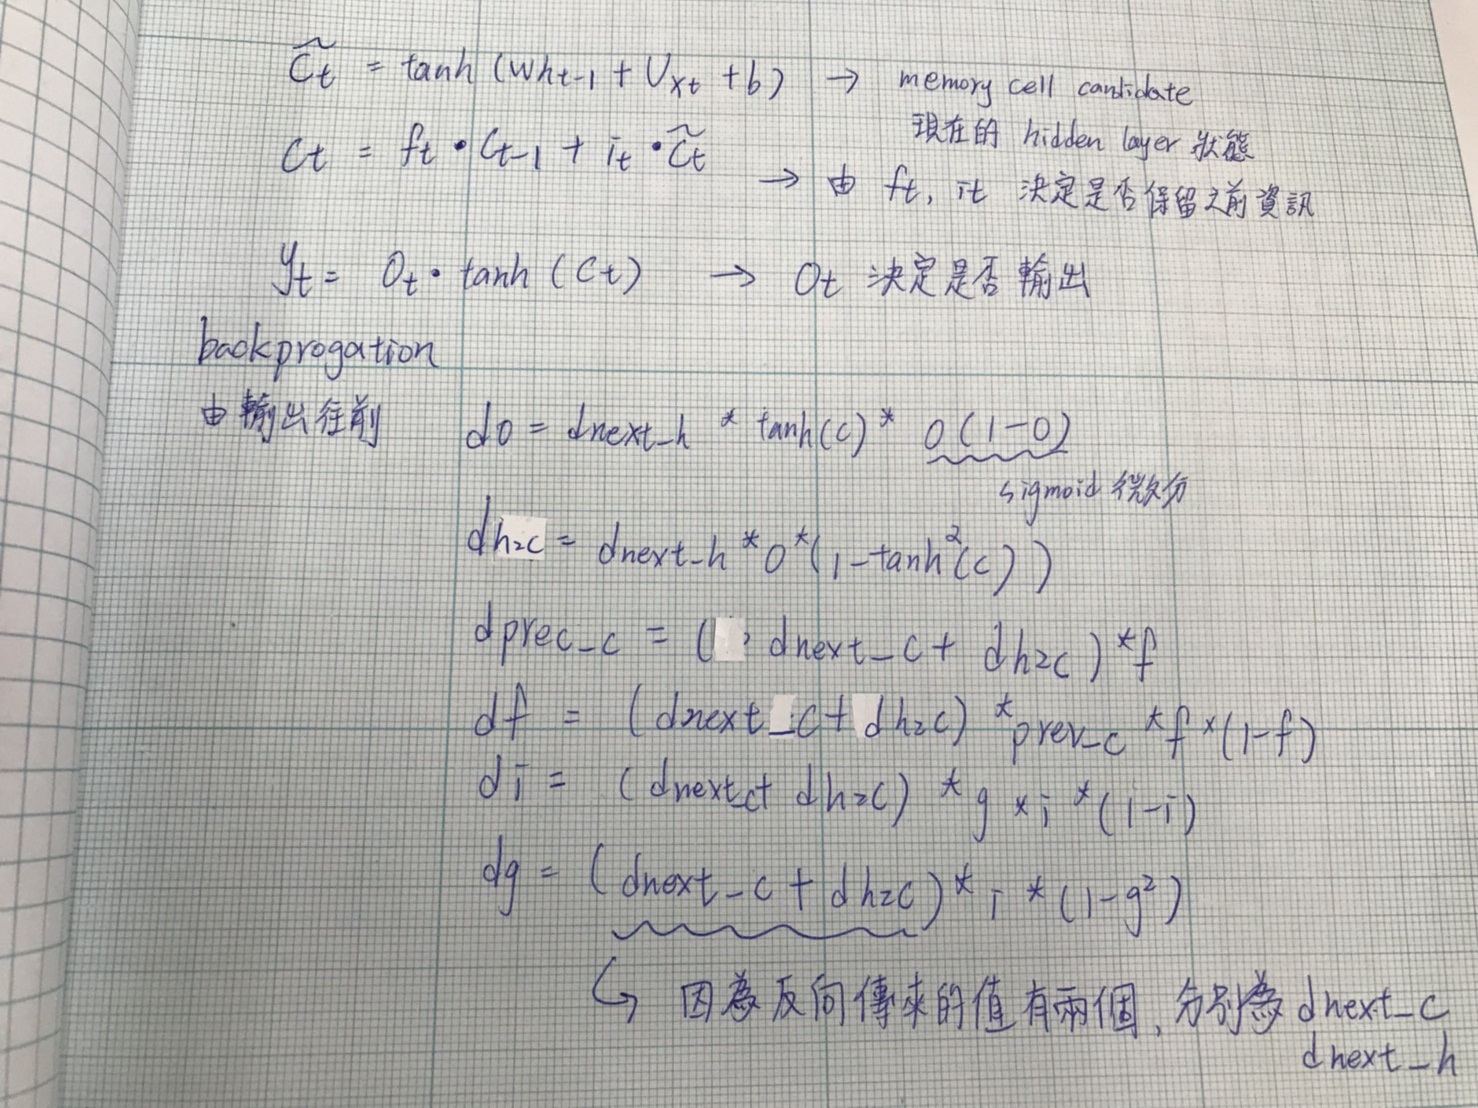 C̃t = tanh (Wht-1 + Uxt + b) → memory cell candidate
現在的 hidden layer 狀態
Ct = ft • Ct-1 + it • C̃t
→ 由 ft, it 決定是否保留之前資訊
yt = Ot • tanh (Ct) → Ot 決定是否輸出
backprogation
由輸出往前 do = dnext_h * tanh(c) * O(1-O)
sigmoid 微分
dh2c = dnext_h * O * (1-tanh²(c))
dprec_c = ( dnext_c + dh2c) * f
df = (dnext_c + dh2c) * prev_c * f * (1-f)
di = (dnext_c + dh2c) * g * i * (1-i)
dg = (dnext_c + dh2c) * i * (1-g²)
↳ 因為反向傳來的值有兩個, 分別為 dnext_c
dnext_h